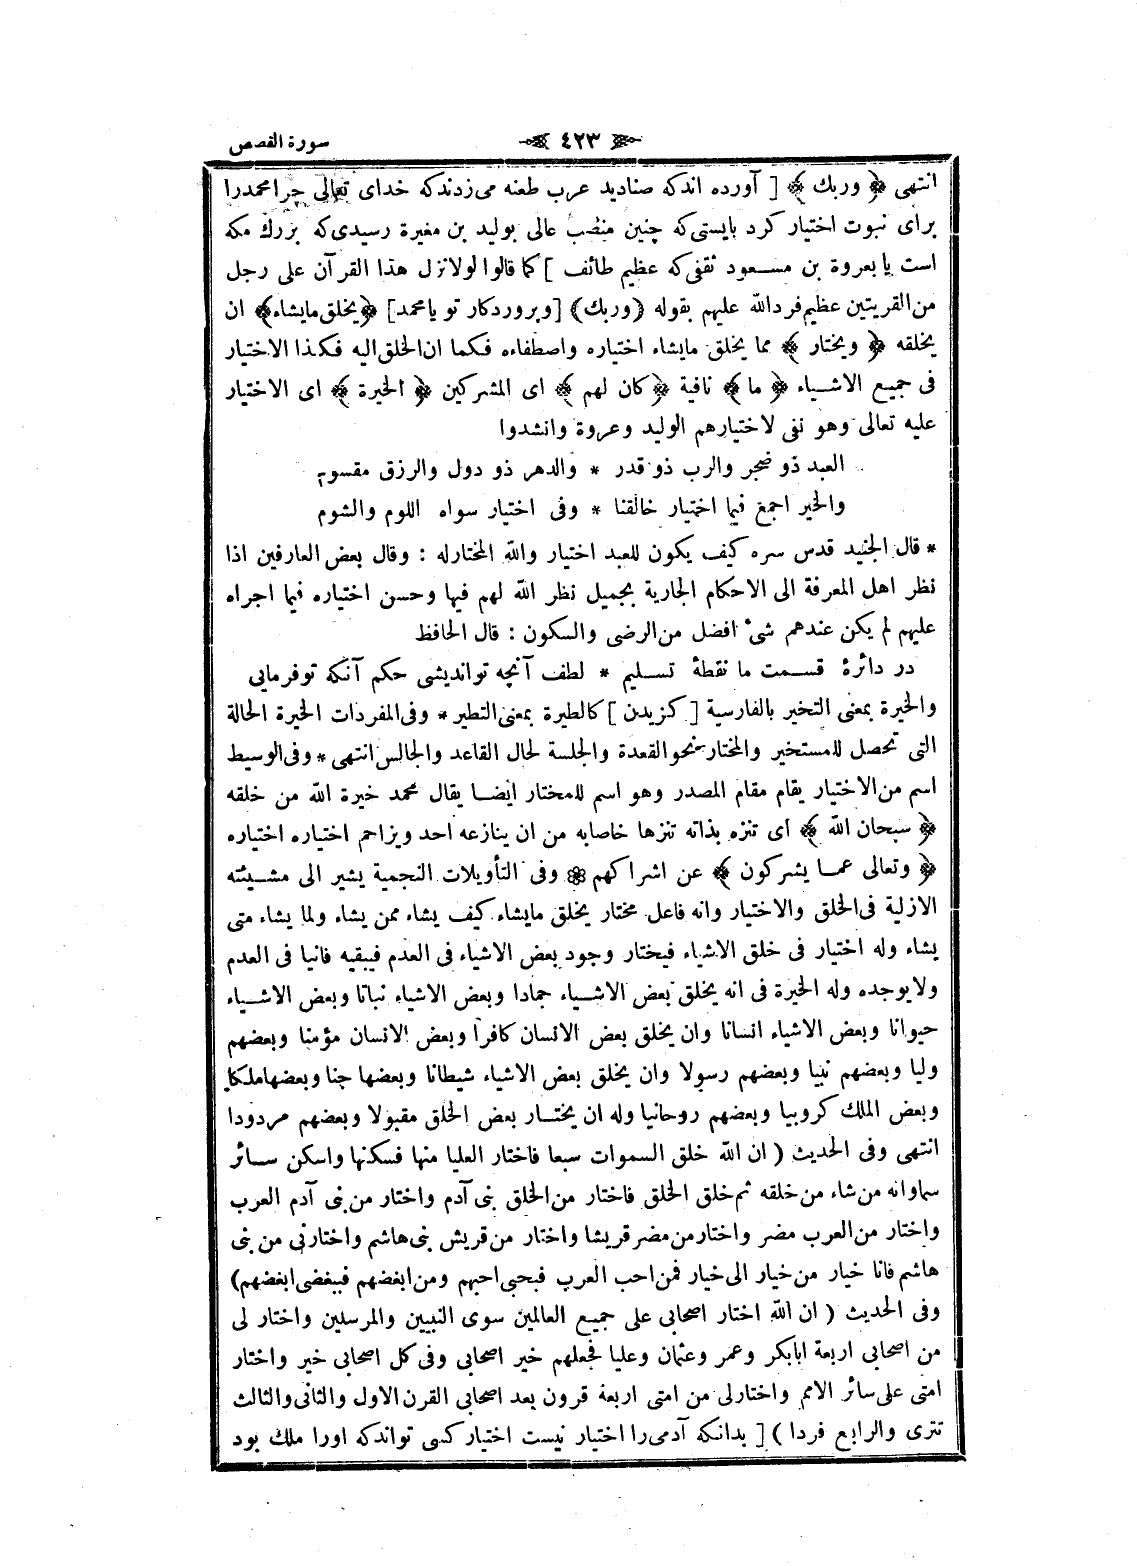 سورة القصص
٤٢٣
انتهى ﴿ وربك ﴾ [ آورده اندكه صناديد عرب طعنه مى زدندكه خداى تعالى چرا محمدرا
براى نبوت اختيار كرد بايستى كه چنين منصب عالى بوليد بن مغيرة رسيدى كه بزرك مكه
است يا بعروة بن مسعود ثقفى كه عظيم طائف ] كما قالوا لولا نزل هذا القرآن على رجل
من القريتين عظيم فرد الله عليهم بقوله (وربك) [ وپروردكار تو يا محمد] ﴿ يخلق مايشاء ﴾ ان
يخلقه ﴿ ويختار ﴾ مما يخلق مايشاء اختياره واصطفاءه فكما ان الخلق اليه فكذا الاختيار
فى جميع الاشياء ﴿ ما ﴾ نافية ﴿ كان لهم ﴾ اى المشركين ﴿ الخيرة ﴾ اى الاختيار
عليه تعالى وهو نفى لاختيارهم الوليد وعروة وانشدوا
العبد ذو ضجر والرب ذو قدر * والدهر ذو دول والرزق مقسوم
والخير اجمع فيما اختيار خالقنا * وفى اختيار سواه اللوم والشوم
* قال الجنيد قدس سره كيف يكون للعبد اختيار والله المختار له : وقال بعض العارفين اذا
نظر اهل المعرفة الى الاحكام الجارية بجميل نظر الله لهم فيها وحسن اختياره فيما اجراه
عليهم لم يكن عندهم شئ افضل من الرضى والسكون : قال الحافظ
در دائرۀ قسمت ما نقطۀ تسليم * لطف آنچه توانديشى حكم آنكه توفرمايى
والخيرة بمعنى التخير بالفارسية [ كزيدن ] كالطيرة بمعنى التطير * وفى المفردات الخيرة الحالة
التى تحصل للمستخير والمختار نحو القعدة والجلسة لحال القاعد والجالس انتهى * وفى الوسيط
اسم من الاختيار يقام مقام المصدر وهو اسم للمختار ايضا يقال محمد خيرة الله من خلقه
﴿ سبحان الله ﴾ اى تنزه بذاته تنزها خاصا به من ان ينازعه احد ويزاحم اختياره اختياره
﴿ وتعالى عما يشركون ﴾ عن اشراكهم ❁ وفى التأويلات النجمية يشير الى مشيئته
الازلية فى الخلق والاختيار وانه فاعل مختار يخلق مايشاء كيف يشاء ممن يشاء ولما يشاء متى
يشاء وله اختيار فى خلق الاشياء فيختار وجود بعض الاشياء فى العدم فيبقيه فانيا فى العدم
ولا يوجده وله الخيرة فى انه يخلق بعض الاشياء جمادا وبعض الاشياء نباتا وبعض الاشياء
حيوانا وبعض الاشياء انسانا وان يخلق بعض الانسان كافرا وبعض الانسان مؤمنا وبعضهم
وليا وبعضهم نبيا وبعضهم رسولا وان يخلق بعض الاشياء شيطانا وبعضها جنا وبعضها ملكا
وبعض الملك كروبيا وبعضهم روحانيا وله ان يختار بعض الخلق مقبولا وبعضهم مردودا
انتهى وفى الحديث ( ان الله خلق السموات سبعا فاختار العليا منها فسكنها واسكن سائر
سماواته من شاء من خلقه ثم خلق الخلق فاختار من الخلق بنى آدم واختار من بنى آدم العرب
واختار من العرب مضر واختار من مضر قريشا واختار من قريش بنى هاشم واختارنى من بنى
هاشم فانا خيار من خيار الى خيار فمن احب العرب فبحبى احبهم ومن ابغضهم فببغضى ابغضهم)
وفى الحديث ( ان الله اختار اصحابى على جميع العالمين سوى النبيين والمرسلين واختار لى
من اصحابى اربعة ابابكر وعمر وعثمان وعليا فجعلهم خير اصحابى وفى كل اصحابى خير واختار
امتى على سائر الامم واختار لى من امتى اربعة قرون بعد اصحابى القرن الاول والثانى والثالث
تترى والرابع فردا ) [ بدانكه آدمى را اختيار نيست اختيار كسى تواندكه اورا ملك بود